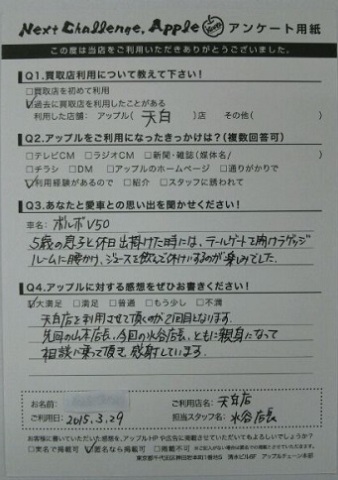 Next Challenge, Apple アンケート用紙
この度は当店をご利用いただきありがとうございました。
Q1.買取店利用について教えて下さい!
□買取店を初めて利用
☑過去に買取店を利用したことがある
利用した店舗: アップル( 天白 )店 その他( )
Q2.アップルをご利用になったきっかけは?(複数回答可)
□テレビCM □ラジオCM □新聞・雑誌(媒体名/ )
□チラシ □DM □アップルのホームページ □通りがかりで
☑利用経験があるので □紹介 □スタッフに誘われて
Q3.あなたと愛車との思い出を聞かせください!
車名: ボルボV50
5歳の息子と休日出掛けた時には、テールゲートを開けラゲッジ
ルームに腰かけ、ジュースを飲んで休けいするのが楽しみでした。
Q4.アップルに対する感想をぜひお書きください!
☑大満足 □満足 □普通 □もう少し □不満
天白店を利用させて頂くのが2回目となります。
先回の山本店長、今回の水谷店長、ともに親身になって
相談に乗って頂き、感謝しています。
お名前: ご利用店名: 天白店
ご利用日: 2015.3.29 担当スタッフ名: 水谷店長
お客様に書いていただいた感想を、アップルHPや広告に掲載させていただいてもよろしいでしょうか?
□実名で掲載可 ☑匿名なら掲載可 □掲載不可